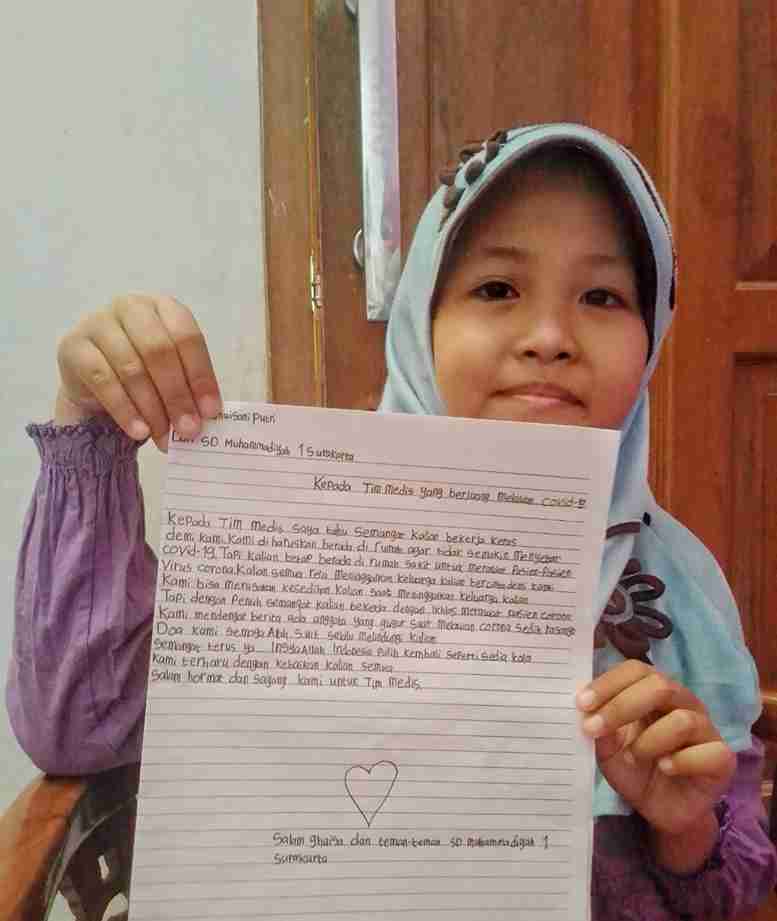 Putri
Dari SD Muhammadiyah 1 Surakarta
Kepada Tim Medis yang berjuang melawan covid-19
Kepada Tim medis saya tahu semangat kalian bekerja keras
demi kami. Kami diharuskan berada di rumah agar tidak semakin menyebar
covid-19. Tapi kalian tetap berada di rumah sakit untuk merawat Pasien-Pasien
Virus corona. Kalian semua rela meninggalkan keluarga kalian tercinta demi kami
Kami bisa merasakan kesedihan kalian saat meninggalkan keluarga kalian
Tapi dengan Penuh semangat kalian bekerja dengan ikhlas merawat pasien corona
Kami mendengar berita ada anggota yang gugur saat melawan corona sedih rasanya
Doa kami semoga Allah S.W.T selalu melindungi kalian
Semangat terus ya InsyaAllah Indonesia Pulih kembali seperti sedia kala
Kami terharu dengan kebaikan kalian semua
Salam hormat dan sayang kami untuk Tim Medis.
Salam ghaisa dan teman-teman SD muhammadiyah 1
Surakarta